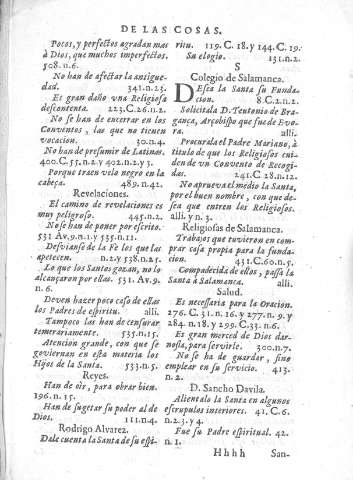 DE LAS COSAS.
Pocos, y perfectos agradan mas
à Dios, que muchos imperfectos.
508. n.6.
No han de afectar la antigue-
dad. 341. n.23.
Es gran daño vna Religiosa
descontenta. 223. C.26. n.2.
No se han de encerrar en los
Conventos, las que no tienen
vocacion. 30. n.4.
No han de presumir de Latinas.
400. C. 55. n.2. y 402. n.2. y 3.
Porque traen velo negro en la
cabeça. 489. n.42.
Revelaciones.
El camino de revelaciones es
muy peligroso. 445. n.2.
No se han de poner por escrito.
531 Av. 9. n.1. y 535. n.11.
Desvianse de la Fe los que las
apetecen. n.2. y 538. n.25.
Lo que los Santos gozan, no lo
alcançaron por ellas. 531. Av. 9.
n. 6.
Deven hazer poco caso de ellas
los Padres de espiritu. alli.
Tampoco las han de censurar
temerariamente. 535. n.15.
Atencion grande, con que se
goviernan en esta materia los
Hijos de la Santa. 533. n.5.
Reyes.
Han de oìr, para obrar bien.
196. n. 15.
Han de sugetar su poder al de
Dios. 111. n.4.
Rodrigo Alvarez.
Dale cuenta la Santa de su espi-
ritu. 119. C. 18. y 144. C. 19.
Su elogio. 131. n.2.
S
Colegio de Salamanca.
DEsea la Santa su Funda-
cion. 8. C.2. n.2.
Solicitala D. Teutonio de Bra-
gança, Arçobispo que fue de Evo-
ra. alli.
Procurala el Padre Mariano, à
titulo de que los Religiosos cui-
den de vn Convento de Recogi-
das. 241. C 28. n.12.
No aprueva el medio la Santa,
por el buen nombre, con que de-
sea que entren los Religiosos.
alli. y n.3.
Religiosas de Salamanca.
Trabajos que tuvieron en com-
prar casa propia para la funda-
cion. 431. C. 60. n.5.
Compadecida de ellos, passa la
Santa à Salamanca. alli.
Salud.
Es necessaria para la Oracion.
276. C. 31. n. 16. y 277. n. 9. y
284. n. 18. y 299. C. 33. n.6.
Es gran merced de Dios dar-
nosla, para servirle. 300. n.7.
No se ha de guardar, sino
emplear en su servicio. 413.
n.2.
D. Sancho Davila.
Alientala la Santa en algunos
escrupulos interiores. 41. C. 6.
n.2. y 3.
Fue su Padre espiritual. 42.
n. 1.
Hhhh San-